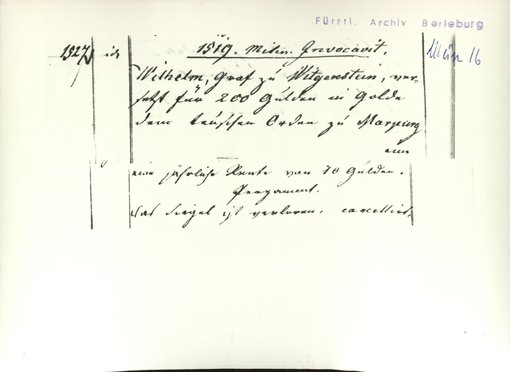 Fürstl. Archiv Berleburg
1527 id 1519. Mitw. Invocavit. März 16
Wilhelm, Graf zu Witgenstein, ver-
setzt für 200 Gulden in Golde
dem teuschen Orden zu Marpurg
eine
eine jährliche Rente von 10 Gulden.
Pergament.
Das Siegel ist verloren. cancelliert.